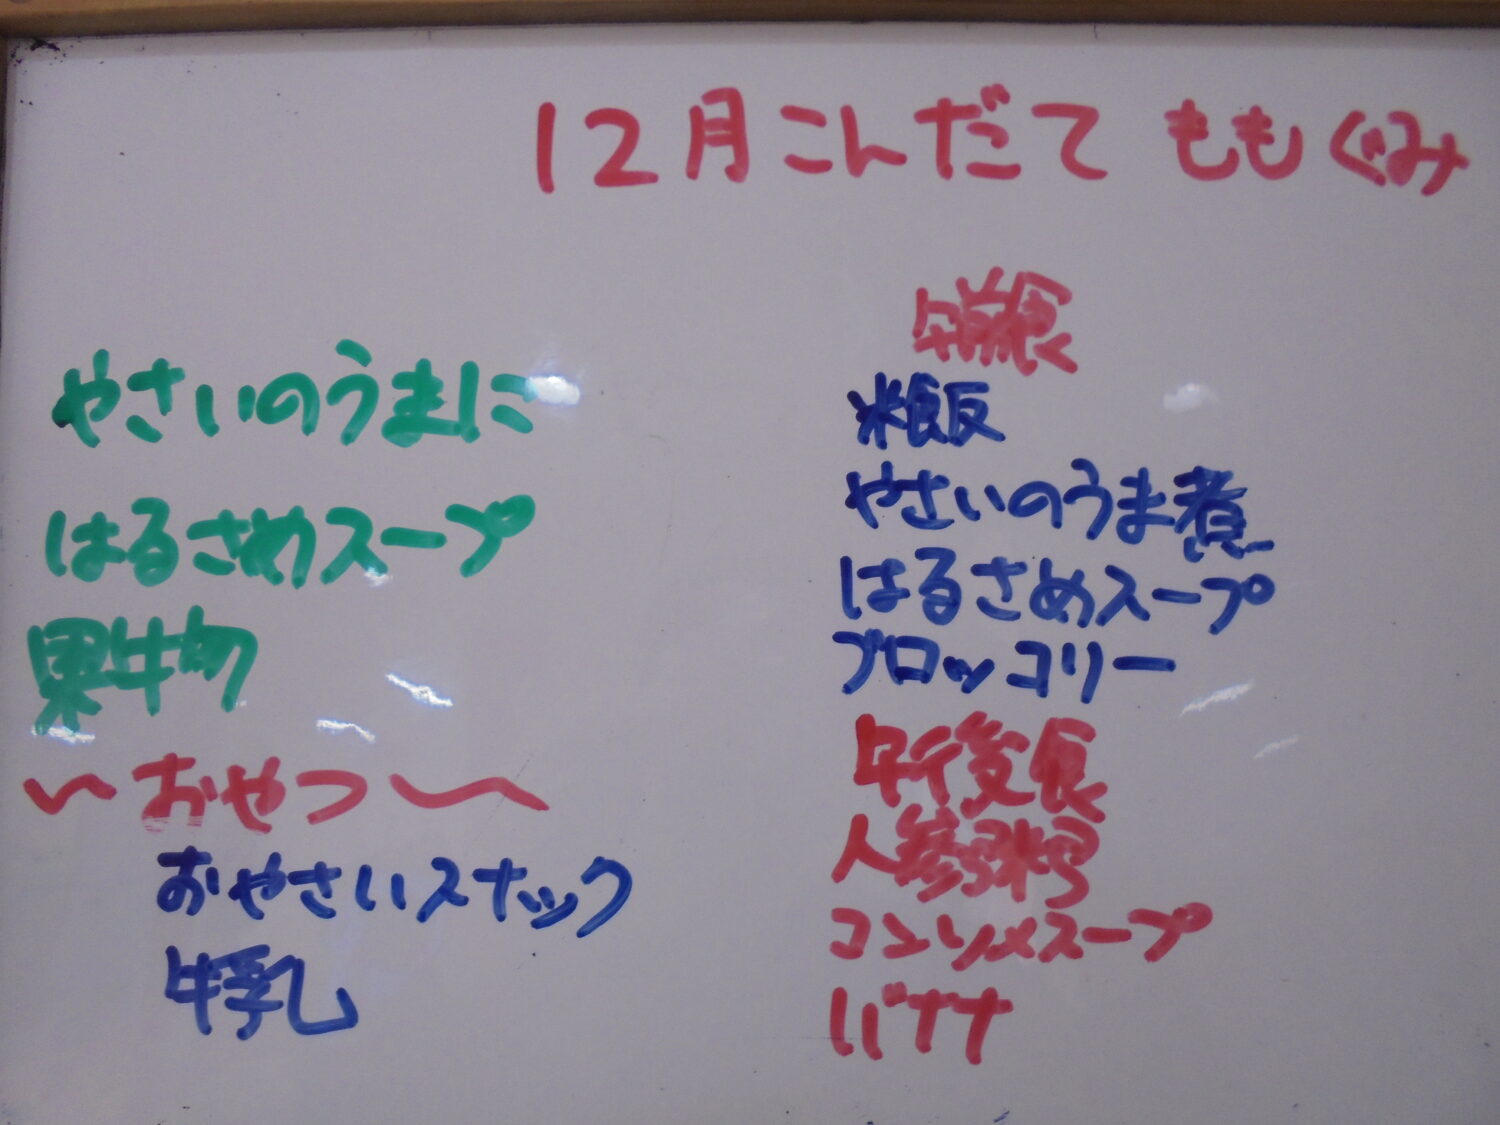 12月こんだて ももぐみ
やさいのうまに
はるさめスープ
果物
～おやつ～
おやさいスナック
牛乳
午前食
米飯
やさいのうま煮
はるさめスープ
ブロッコリー
午後食
人参粥
コンソメスープ
バナナ